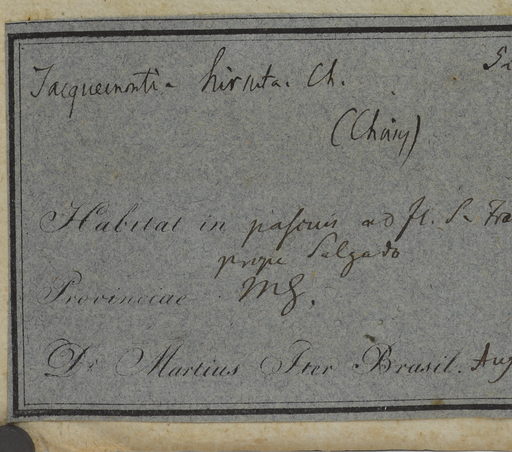 Jacquemontia hirsuta. Ch.
(Choisy)
Habitat in pascuis ad fl. S. Fra
prope Salgado
Provinciae MG.
Dr. Martius Iter Brasil. Aug